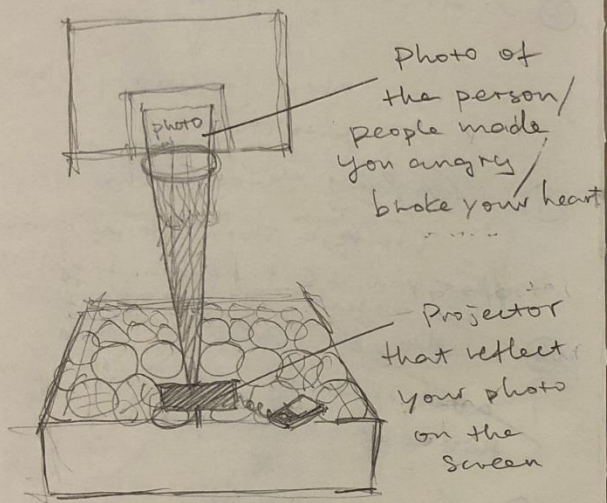 photo
photo of
the person/
people made
you angry/
broke your heart
......
Projector
that reflect
your photo
on the
screen